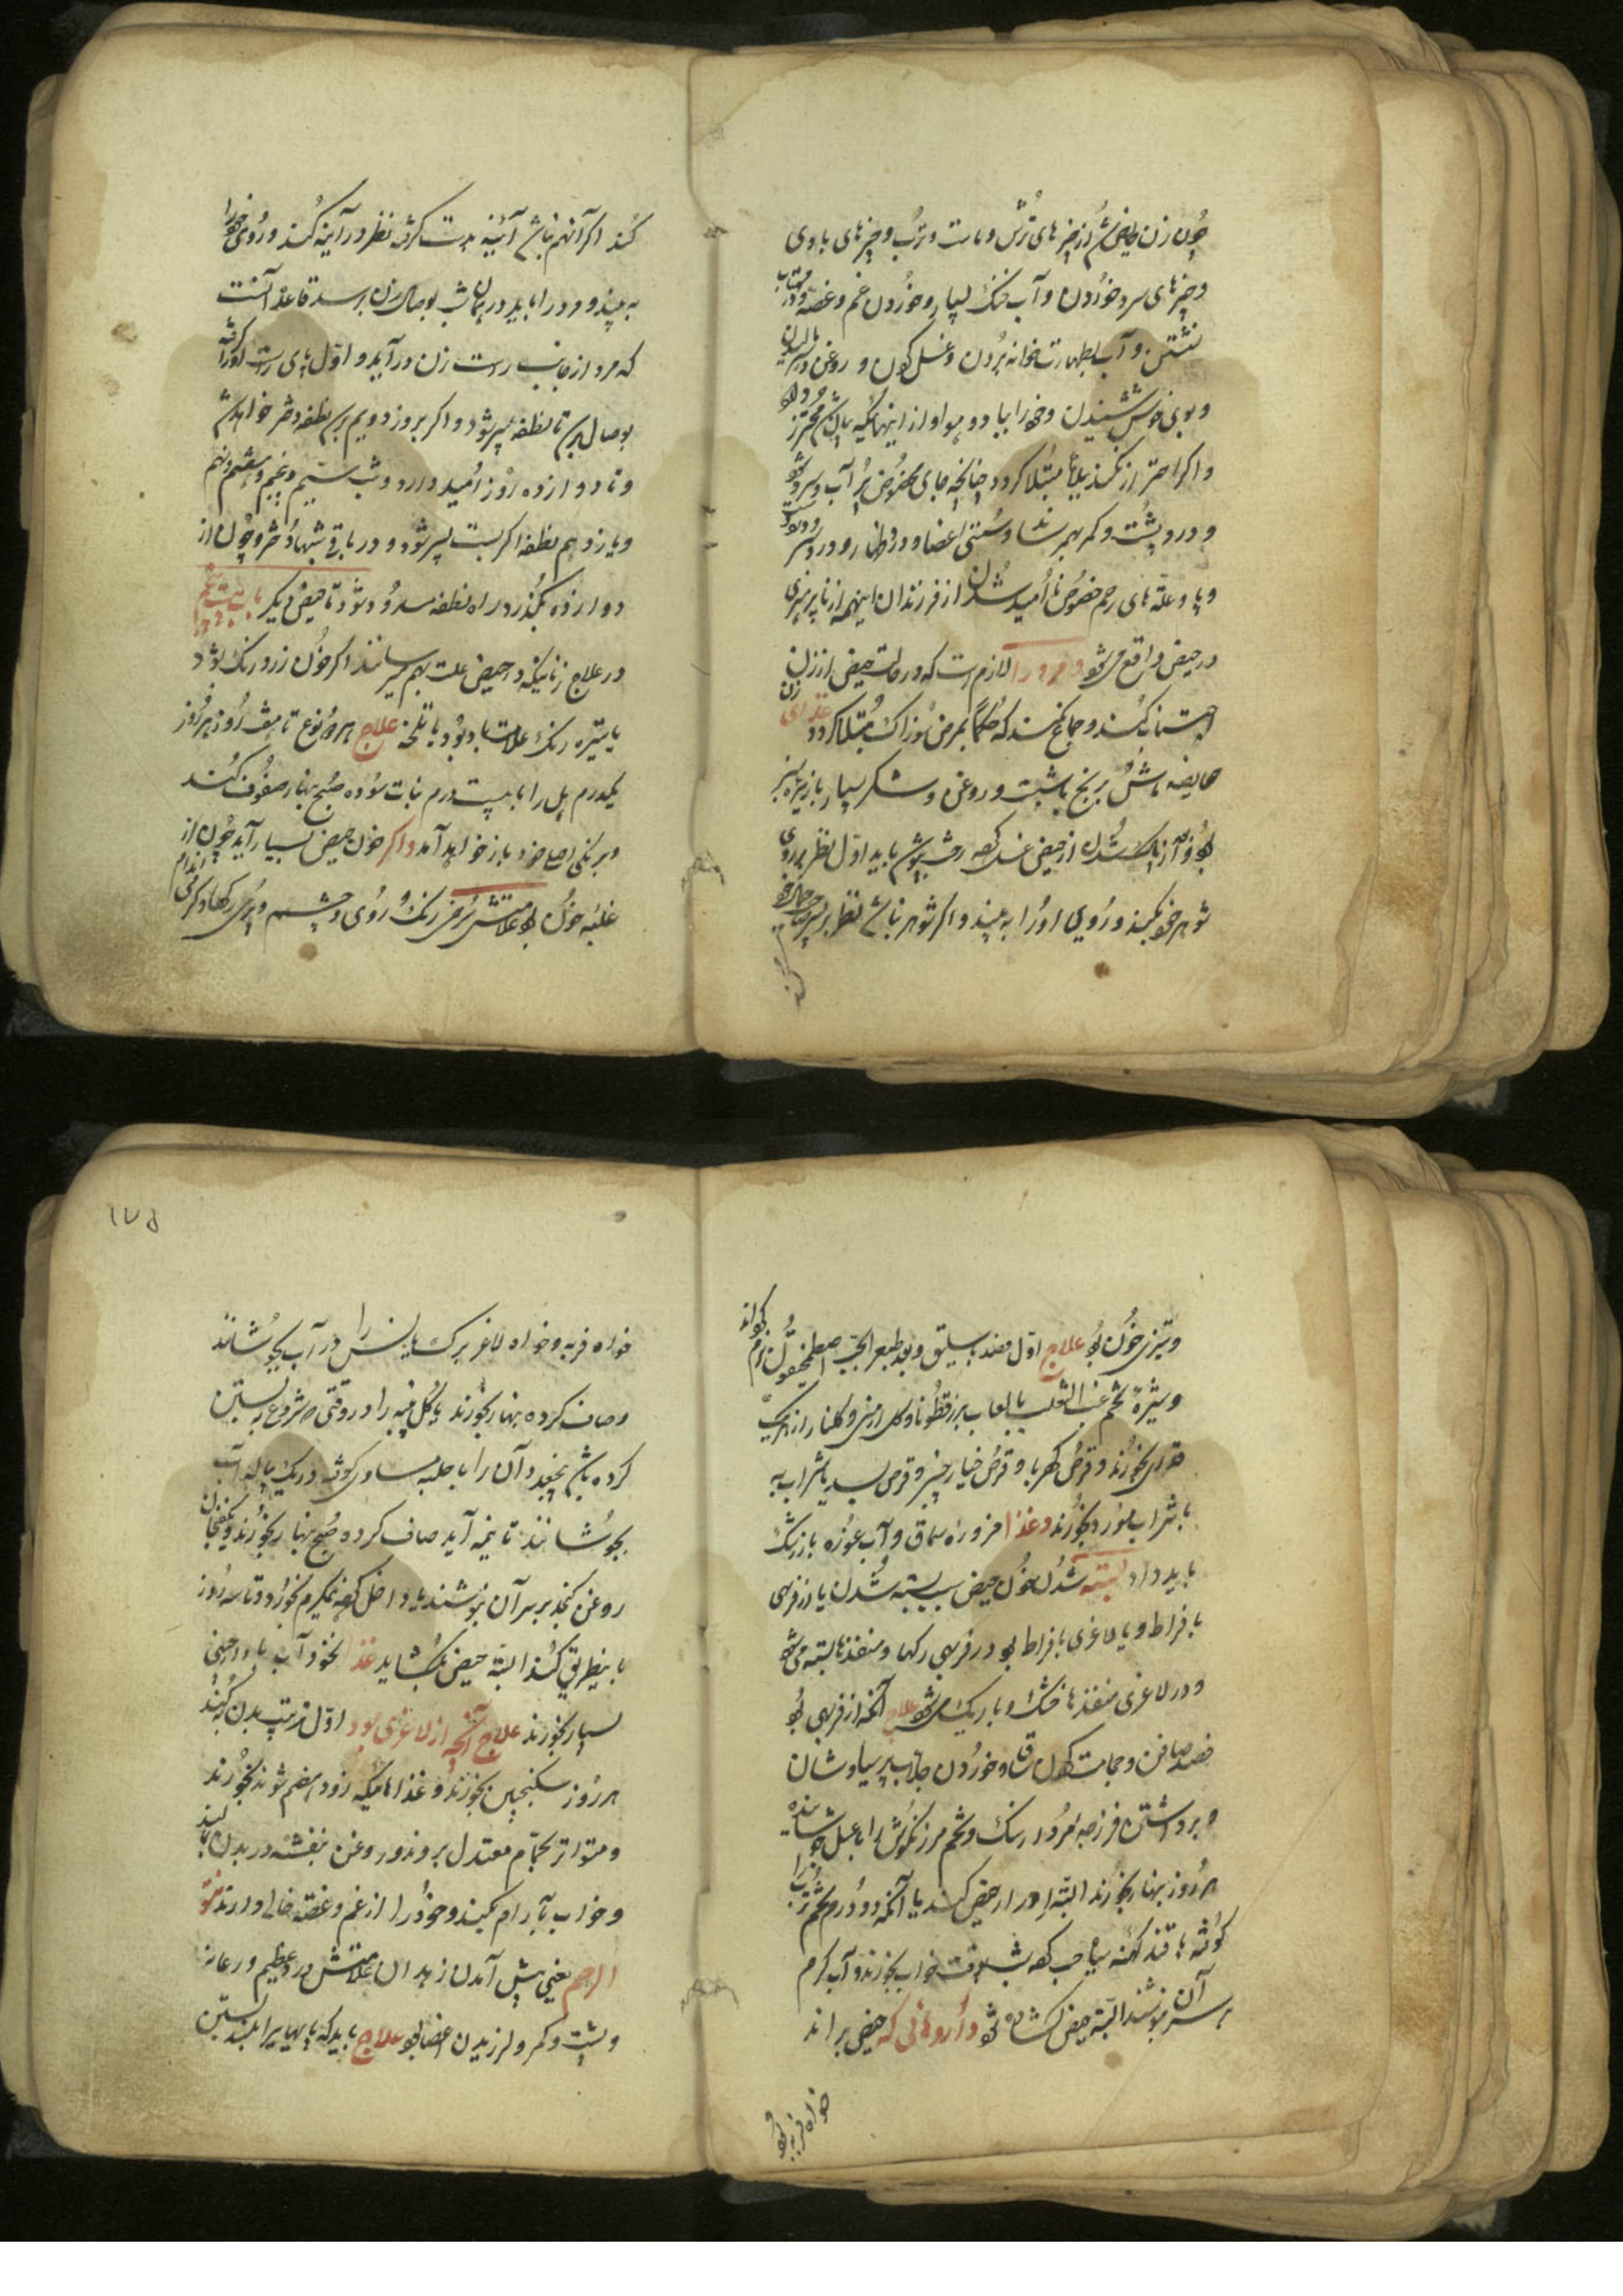 چون زن حایض شد از چیز های ترش و ماست و ترب و چیز های بادی
و چیز های سرد خوردن و آب خنک بسیار و خوردن غم و غصه و در مهتاب
نشستن و آب بطهارت خانه بردن و غسل کردن و روغن در سر مالیدن
و بوی خوش شنیدن و خود را بباد و هوا دادن از اینها همکیه باید محترز
و اکر احتراز نکند ببلا مبتلا کردد چنانچه جای مخصوص پر آب و سرد شود
و درد پشت و کمر بهم رساند و سستی اعضا و درد سر
و پا و علة های رحم خصوص نا امید شدن از فرزندان اینهمه از نا پرهیزی
در حیض واقع میشود و مرد را لازم است که در حالت حیض از زن
اجتناب کند و جماع نکند که حکما بمرض آن مبتلا کردد غذای زن
حایضه ماش برنج باشبت و روغن و شکر بسیار بازیره سبز
بود و آن پاک شدن از حیض غسل کرده رخت پوشد باید اول نظر بر روی
شوهر خود بکند و روی او را به بیند و اکر شوهر نباشد نظر بر پسر صاحب جمال خود
کند
کند اکر آنهم نباشد آئینه بدست کرفته نظر در آینه کند و روی خود را
به بیند و مرد را باید در همان شب بوصال زن برسد قاعده آنست
که مرد از جانب راست زن در آید و اول پای راست او را کرفته
بوصال رسد تا نطفه پسر شود و اکر بروز دویم رسد نطفه دختر خواهد شد
و تا دوازده روز امید دارد و شب سیم و پنجم و هفتم و نهم
و یازدهم نطفه اکر بست پسر شود و در باقی شبها دختر و چون از
دوازده بکذرد راه نطفه مسدود شود تا حیض دیکر باب بیست پنجم
در علاج زنانیکه در حیض علت بهم میرسانند اکر خون زرد رنک بود
یا تیره رنک علامت باد بود یا تلخه علاج هر دو نوع تا هفت روز هر روز
یکدرم هل را با بیست درم نبات سوده صبح بنهار صفوف کند
و برنکی اصلی خود باز خواهد آمد و اکر خون حیض بسیار آید چون از
غلبه خون بود علامتش سرخی رنک روی و چشم و پری رکها و کرمی اندام
و تیزی خون بود علاج اول فصد باسلیق و بعد طبع را بحب اصطمخیقون نرم کند
و شیره تخم عنب الثعلب با لعاب بزرقطونا و کل ارمنی و کلنار از هر یک
قدری بخورند و قرص کهربا و قرص خیار چنبر و قرص بسد با شراب به
با شراب مورد بخورند و غذا مزوره سماق و آب غوره با زرشک
باید داد بسته شدن خون حیض سبب بسته شدن یا از فربهی
بافراط و یا لاغری بافراط بود در فربهی رکها و منفذها بسته می شود
و در لاغری منفذها خشک و باریک می شود علاج آنکه از فربهی بود
فصد صافن و حجامت کردن ساق و خوردن جلاب پرسیاوشان
و برداشتن فرزجه مرود رنک و تخم مرزنکوش را با عسل جوشانیده
هر روز بنهار بخورند البته ادرار حیض کند یا آنکه دو درم تخم ترب را
کوفته با قند کهنه سیاه حب کرده شب وقت خواب بخورند و آب کرم
بر سر آن بنوشند البته حیض کشاده شود و داروهائی که حیض براند
خواه فربه بود
۱۷۵
خواه فربه و خواه لاغر برک ها را در آب بجوشانند
و صاف کرده بنهار بخورند یا کل پنبه را در وقتی که شروع به بستن
کرده باشد بچیند و آن را با حلبه مساوی کوفته در یک پیاله آب
بجوشانند تا نیمه آید صاف کرده صبح بنهار بخورند و یکفنجان
روغن کنجد بر سر آن بنوشند یا داخل کرده نیمکرم بخورد و تا سه روز
باینطریق کند البته حیض بکشاید غذا نخود آب با دارچینی
بسیار بخورند علاج آنچه از لاغری بود اول ترتیب بدن کنند
هر روز سکنجبین بخورند و غذاهائیکه زود هضم شوند بخورند
و متواتر بحمام معتدل بروند و روغن بنفشه در بدن بمالند
و خواب بآرام بکنند و خود را از غم و غصه خالی دارند نتو
الرحم یعنی پیش آمدن زهدان علامتش درد عظیم در عانه
و پشت و کمر و لرزیدن اعضا بود علاج باید که پایها بر بالا بستن